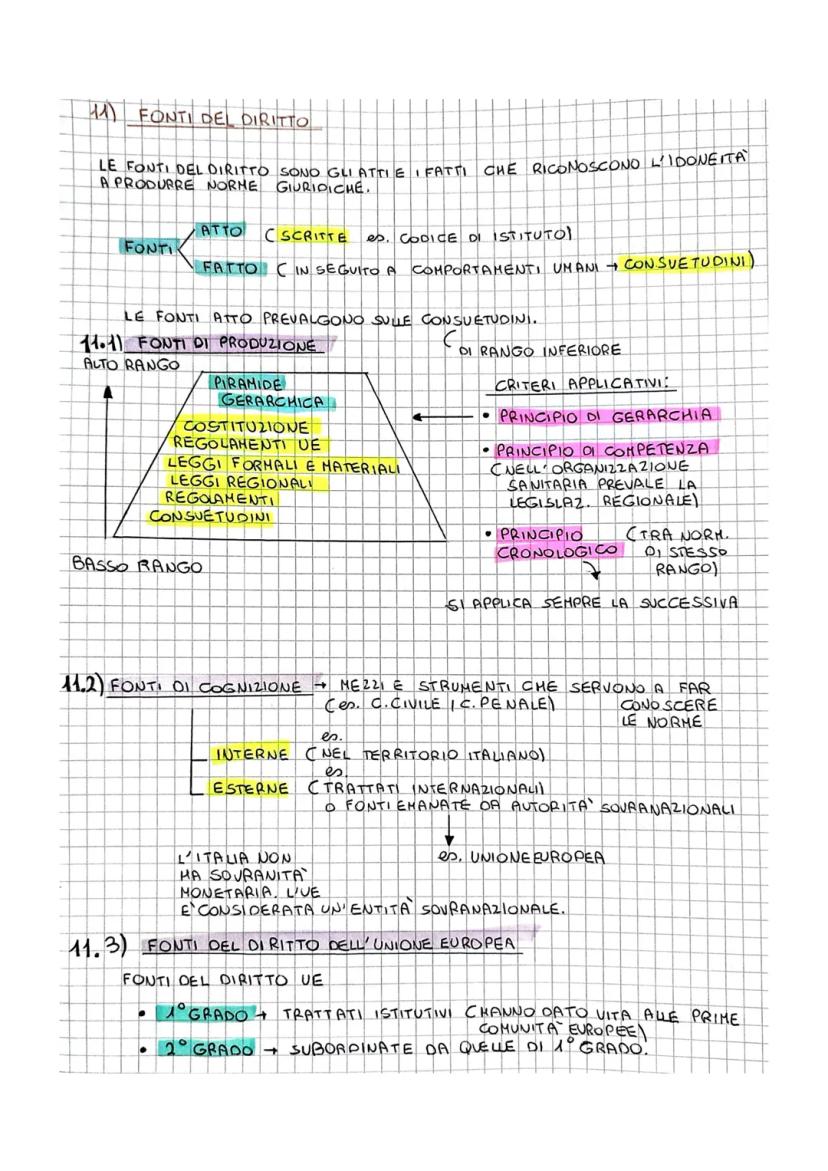 11) FONTI DEL DIRITTO
LE FONTI DEL DIRITTO SONO GLI ATTI E I FATTI CHE RICONOSCONO L'IDONEITÀ
A PRODURRE NORME GIURIDICHE.
ATTO (SCRITTE es. CODICE DI ISTITUTO)
FONTI
FATTO (IN SEGUITO A COMPORTAMENTI UMANI → CONSUETUDINI)
LE FONTI ATTO PREVALGONO SULLE CONSUETUDINI.
DI RANGO INFERIORE
11.1) FONTI DI PRODUZIONE
ALTO RANGO
PIRAMIDE
GERARCHICA
COSTITUZIONE
REGOLAMENTI UE
LEGGI FORMALI E MATERIALI
LEGGI REGIONALI
REGOLAMENTI
CONSUETUDINI
BASSO RANGO
CRITERI APPLICATIVI:
• PRINCIPIO DI GERARCHIA
• PRINCIPIO DI COMPETENZA
(NELL'ORGANIZZAZIONE
SANITARIA PREVALE LA
LEGISLAZ. REGIONALE)
• PRINCIPIO (TRA NORM.
CRONOLOGICO DI STESSO
RANGO)
SI APPLICA SEMPRE LA SUCCESSIVA
11.2) FONTI DI COGNIZIONE → MEZZI E STRUMENTI CHE SERVONO A FAR
(es. C.CIVILE, C.PENALE) CONOSCERE
LE NORME
es.
INTERNE (NEL TERRITORIO ITALIANO)
es.
ESTERNE (TRATTATI INTERNAZIONALI)
O FONTI EMANATE DA AUTORITÀ SOVRANAZIONALI
es. UNIONE EUROPEA
L'ITALIA NON
HA SOVRANITÀ
MONETARIA. L'UE
E' CONSIDERATA UN'ENTITÀ SOVRANAZIONALE.
11.3) FONTI DEL DIRITTO DELL'UNIONE EUROPEA
FONTI DEL DIRITTO UE
• 1° GRADO → TRATTATI ISTITUTIVI (HANNO DATO VITA ALLE PRIME
COMUNITÀ EUROPEE)
• 2° GRADO → SUBORDINATE DA QUELLE DI 1° GRADO.